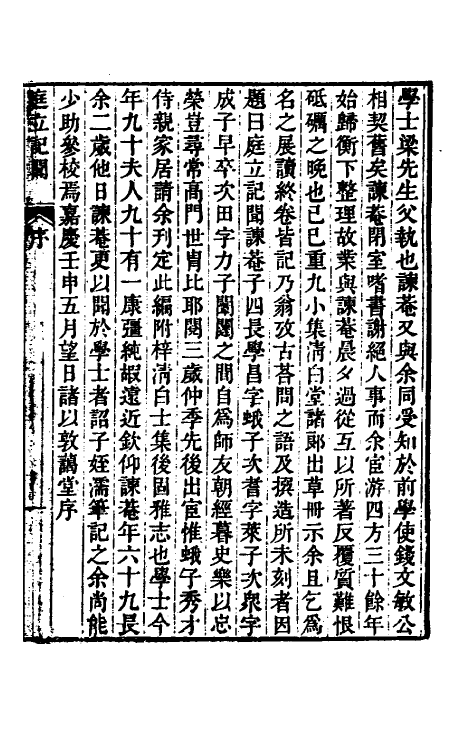 學士梁先生父執也諫菴又與余同受知於前學使錢文敏公
相契舊矣諫菴閉室嗜書謝絕人事而余宦游四方三十餘年
始歸衡下整理故業與諫菴晨夕過從互以所著反覆質難恨
砥礪之晚也己巳重九小集清白堂諸郞出草冊示余且乞為
名之展讀終卷皆記乃翁攷古荅問之語及撰造所未刻者因
題曰庭立記聞諫菴子四長學昌字蛾子次耆字萊子次衆字
成子早卒次田字力子闇闇之間自為師友朝經暮史樂以忘
榮豈尋常高門世胄比耶閱三歲仲季先後出宦惟蛾子秀才
侍親家居請余刊定此編附梓清白士集後固雅志也學士今
年九十夫人九十有一康彊純嘏遠近欽仰諫菴年六十九長
余二歲他日諫菴更以聞於學士者詔子姪濡筆記之余尚能
少助參校焉嘉慶壬申五月望日諸以敦藹堂序
庭立記聞 序